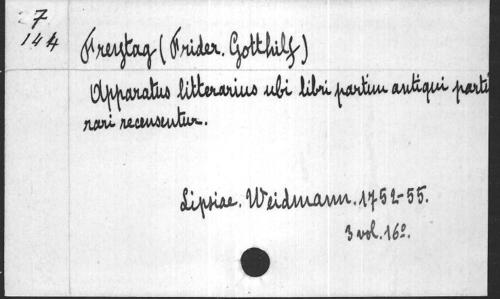 7
144
Freytag (Frider. Gotthilf)
Apparatus litterarius ubi libri partim antiqui parti
rari recensentur.
Lipsiae. Weidmann. 1752-55.
3 vol. 16º.